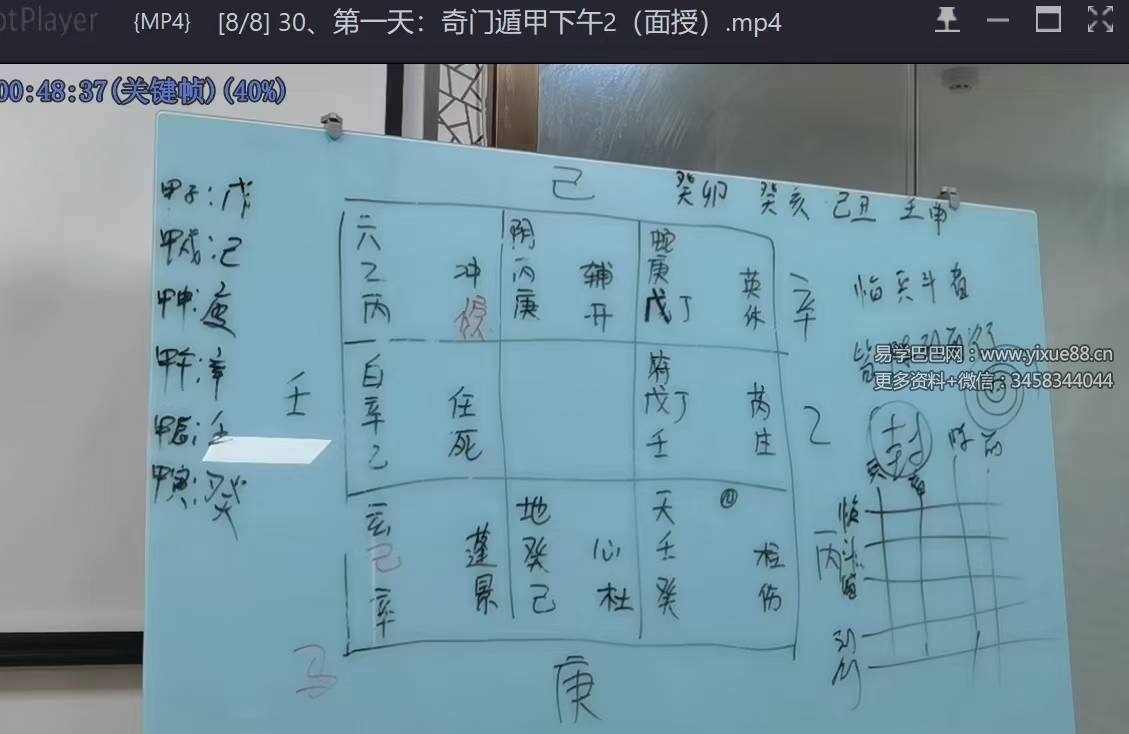 otPlayer {MP4} [8/8] 30、第一天：奇门遁甲下午2（面授）.mp4
00:48:37(关键帧)(40%)
己 癸卯 癸亥 己丑 壬申
甲子：戊
甲戌：己
甲申：庚
甲午：辛
甲辰：壬
甲寅：癸
六
乙 冲
丙
阴
丙 辅
庚 开
蛇
庚 英
戊丁 休
辛
壬
白
辛 任
乙 死
符
戊丁 芮
壬 庄
乙
玄
己 蓬
辛 景
地
癸 心
己 杜
天
壬 柱
癸 伤
丙
马
庚
临兵斗者
易学巴巴网：www.yixue88.cn
更多资料+微信：3458344044
封
阵 前
临
斗